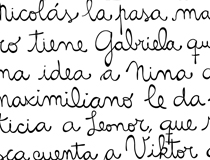 Nicolás la pasa ma
ro tiene Gabriela qu
na idea a Nina c
maximiliano le da
ticia a Leonor, que s
sca cuenta a Viktor a